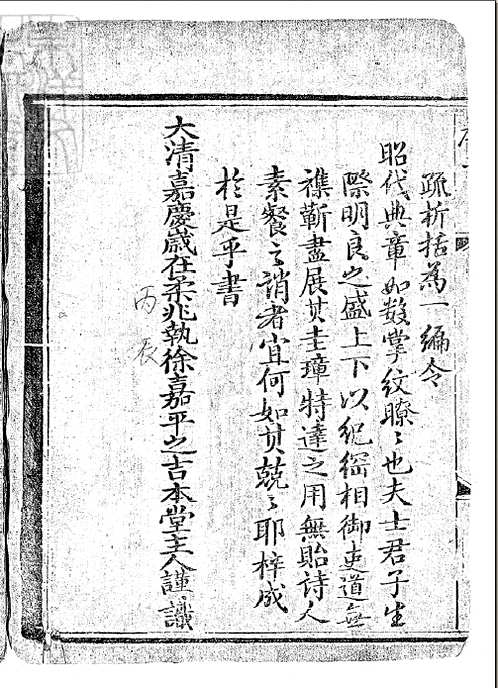 疏析括為一編令
昭代典章如數掌紋瞭〻也夫士君子生
際明良之盛上下以紀綱相御吏道無
襍靳盡展其圭璋特達之用無貽詩人
素餐之誚者宜何如其兢〻耶梓成
於是乎書
大清嘉慶歲在柔兆執徐嘉平之吉本堂主人謹識
丙辰